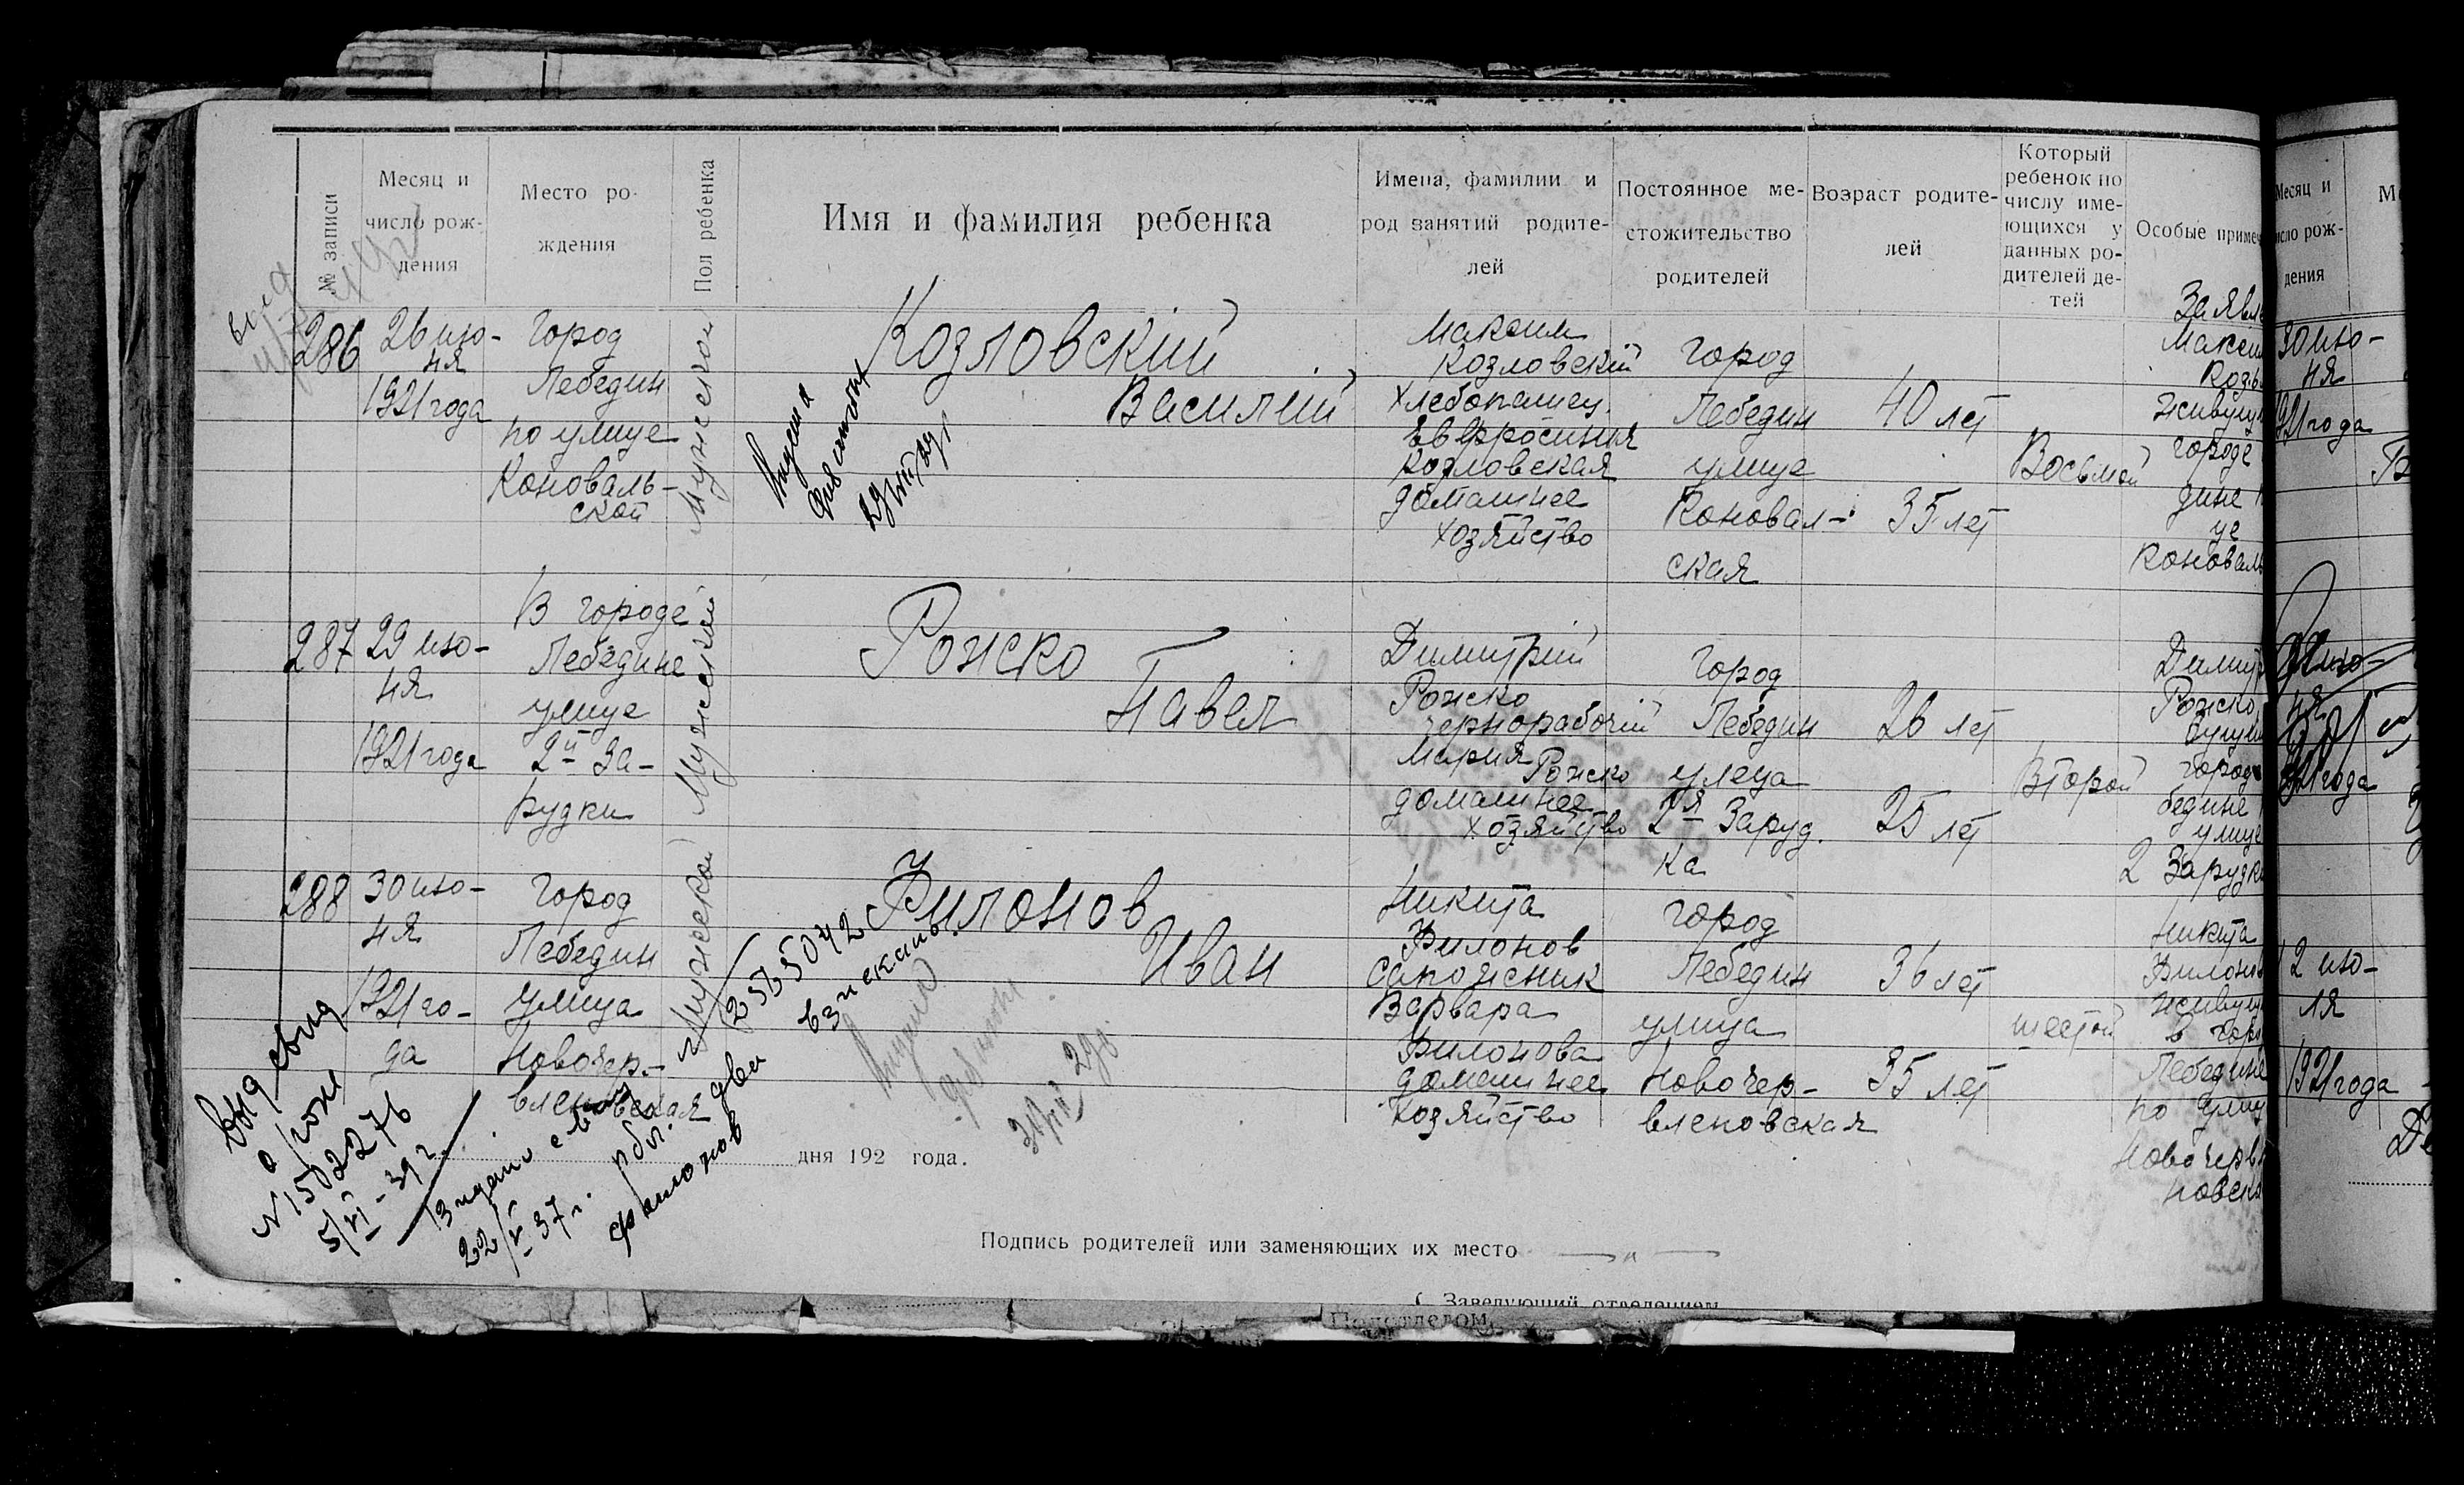 № записи
Месяц и
число рож-
дения
Место ро-
ждения
Пол ребенка
Имя и фамилия ребенка
Имена, фамилии и
род занятий родите-
лей
Постоянное ме-
стожительство
родителей
Возраст родите-
лей
Который
ребенок по
числу име-
ющихся у
данных ро-
дителей де-
тей
Особые примеч
286
26 ию-
ня
1921 года
Город
Лебедин
по улице
Коноваль-
ской
Мужской
Козловский
Василий
Максим
Козловский
хлебопашец
Евфросиния
Козловская
домашнее
хозяйство
город
Лебедин
улице
Коновал-
ская
40 лет
35 лет
Восьмой
Заявле
Максим
Козл
живущ
городе
дине
це
Коноваль
287
29 ию-
ня
1921 года
В городе
Лебедине
улице
2й За-
рудки
Мужской
Рожско
Павел
Димитрий
Рожско
чернорабочий
Мария
Рожско
домашнее
хозяйство
город
Лебедин
улица
2я Заруд.
ка
26 лет
25 лет
Второй
Димит
Рожско
город
бедине
улице
2 Зарудк
288
30 ию-
ня
1921 го-
да
Город
Лебедин
улица
Новочер-
вленовская
Мужской
Филонов
Иван
Никита
Филонов
сапожник
Варвара
Филонова
домашнее
хозяйство
город
Лебедин
улица
Новочер-
вленовская
36 лет
35 лет
шестой
Никита
Филонов
живущ
в горо
Лебедине
по улиц
Новочерв
новска
Выд свид
о рожд
N 1502276
5/VI-39 г.
22/V 37 г.
2565042
взыскано
два
рубл.
Филонов
дня 192 года.
Подпись родителей или заменяющих их место
Заведующий отделением
Подотделом
Месяц и
число рож-
дения
30 ию-
ня
1921 года
ня
1921 года
2 ию-
ля
1921 года